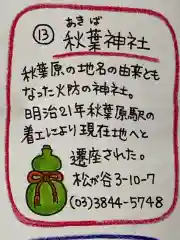 あきば
⑬ 秋葉神社
秋葉原の地名の由来とも
なった火防の神社。
明治21年秋葉原駅の
着工により現在地へと
遷座された。
松が谷3-10-7
(03)3844-5748